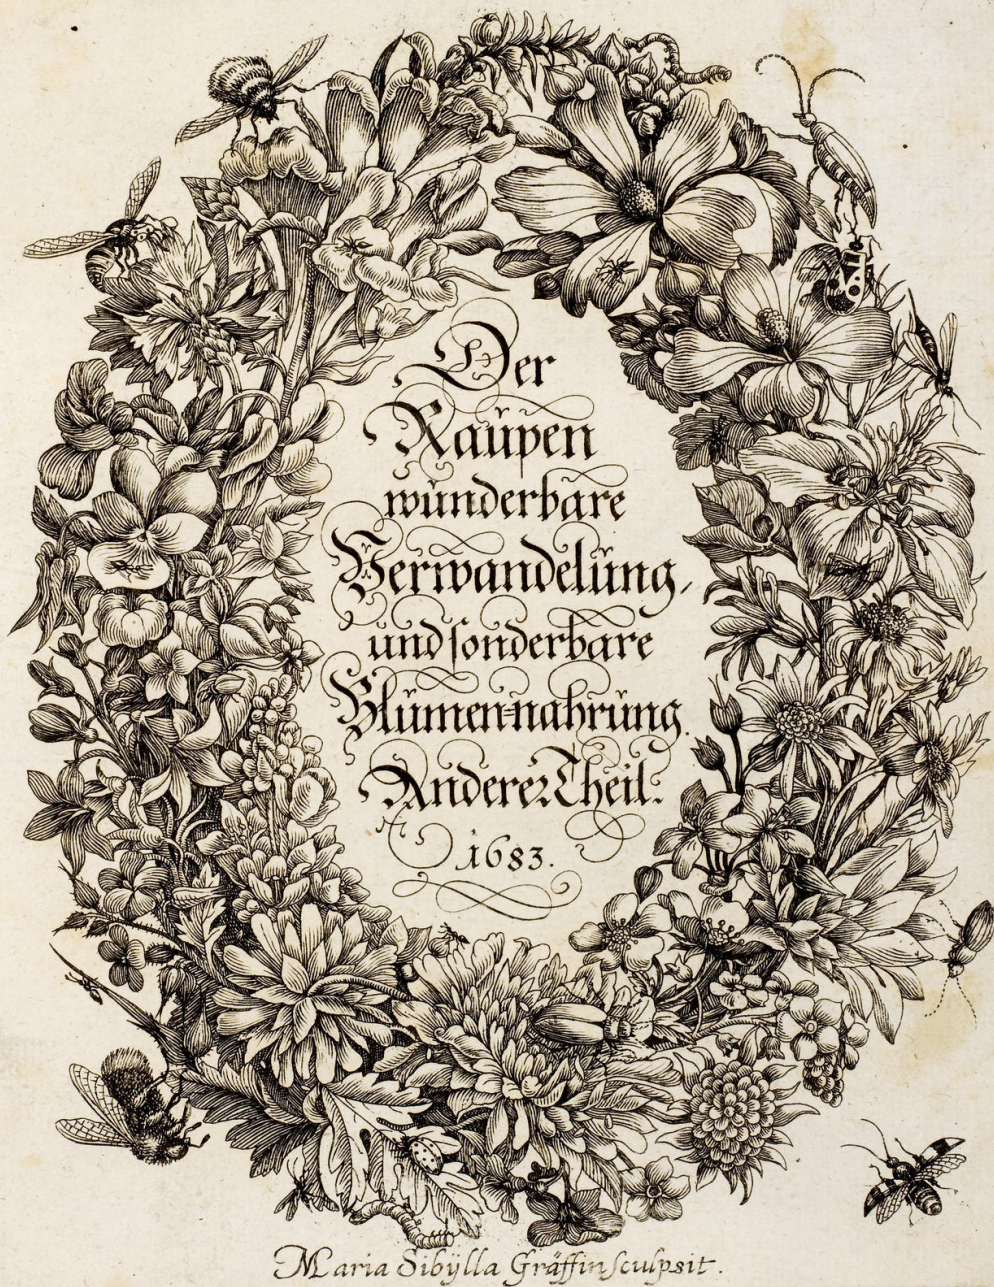 Der
Raŭpen
wŭnderbare
Verwandelŭng,
und sonderbare
Blŭmen=nahrŭng.
Anderer Theil.
1683.
Maria Sibÿlla Gräffin sculpsit.